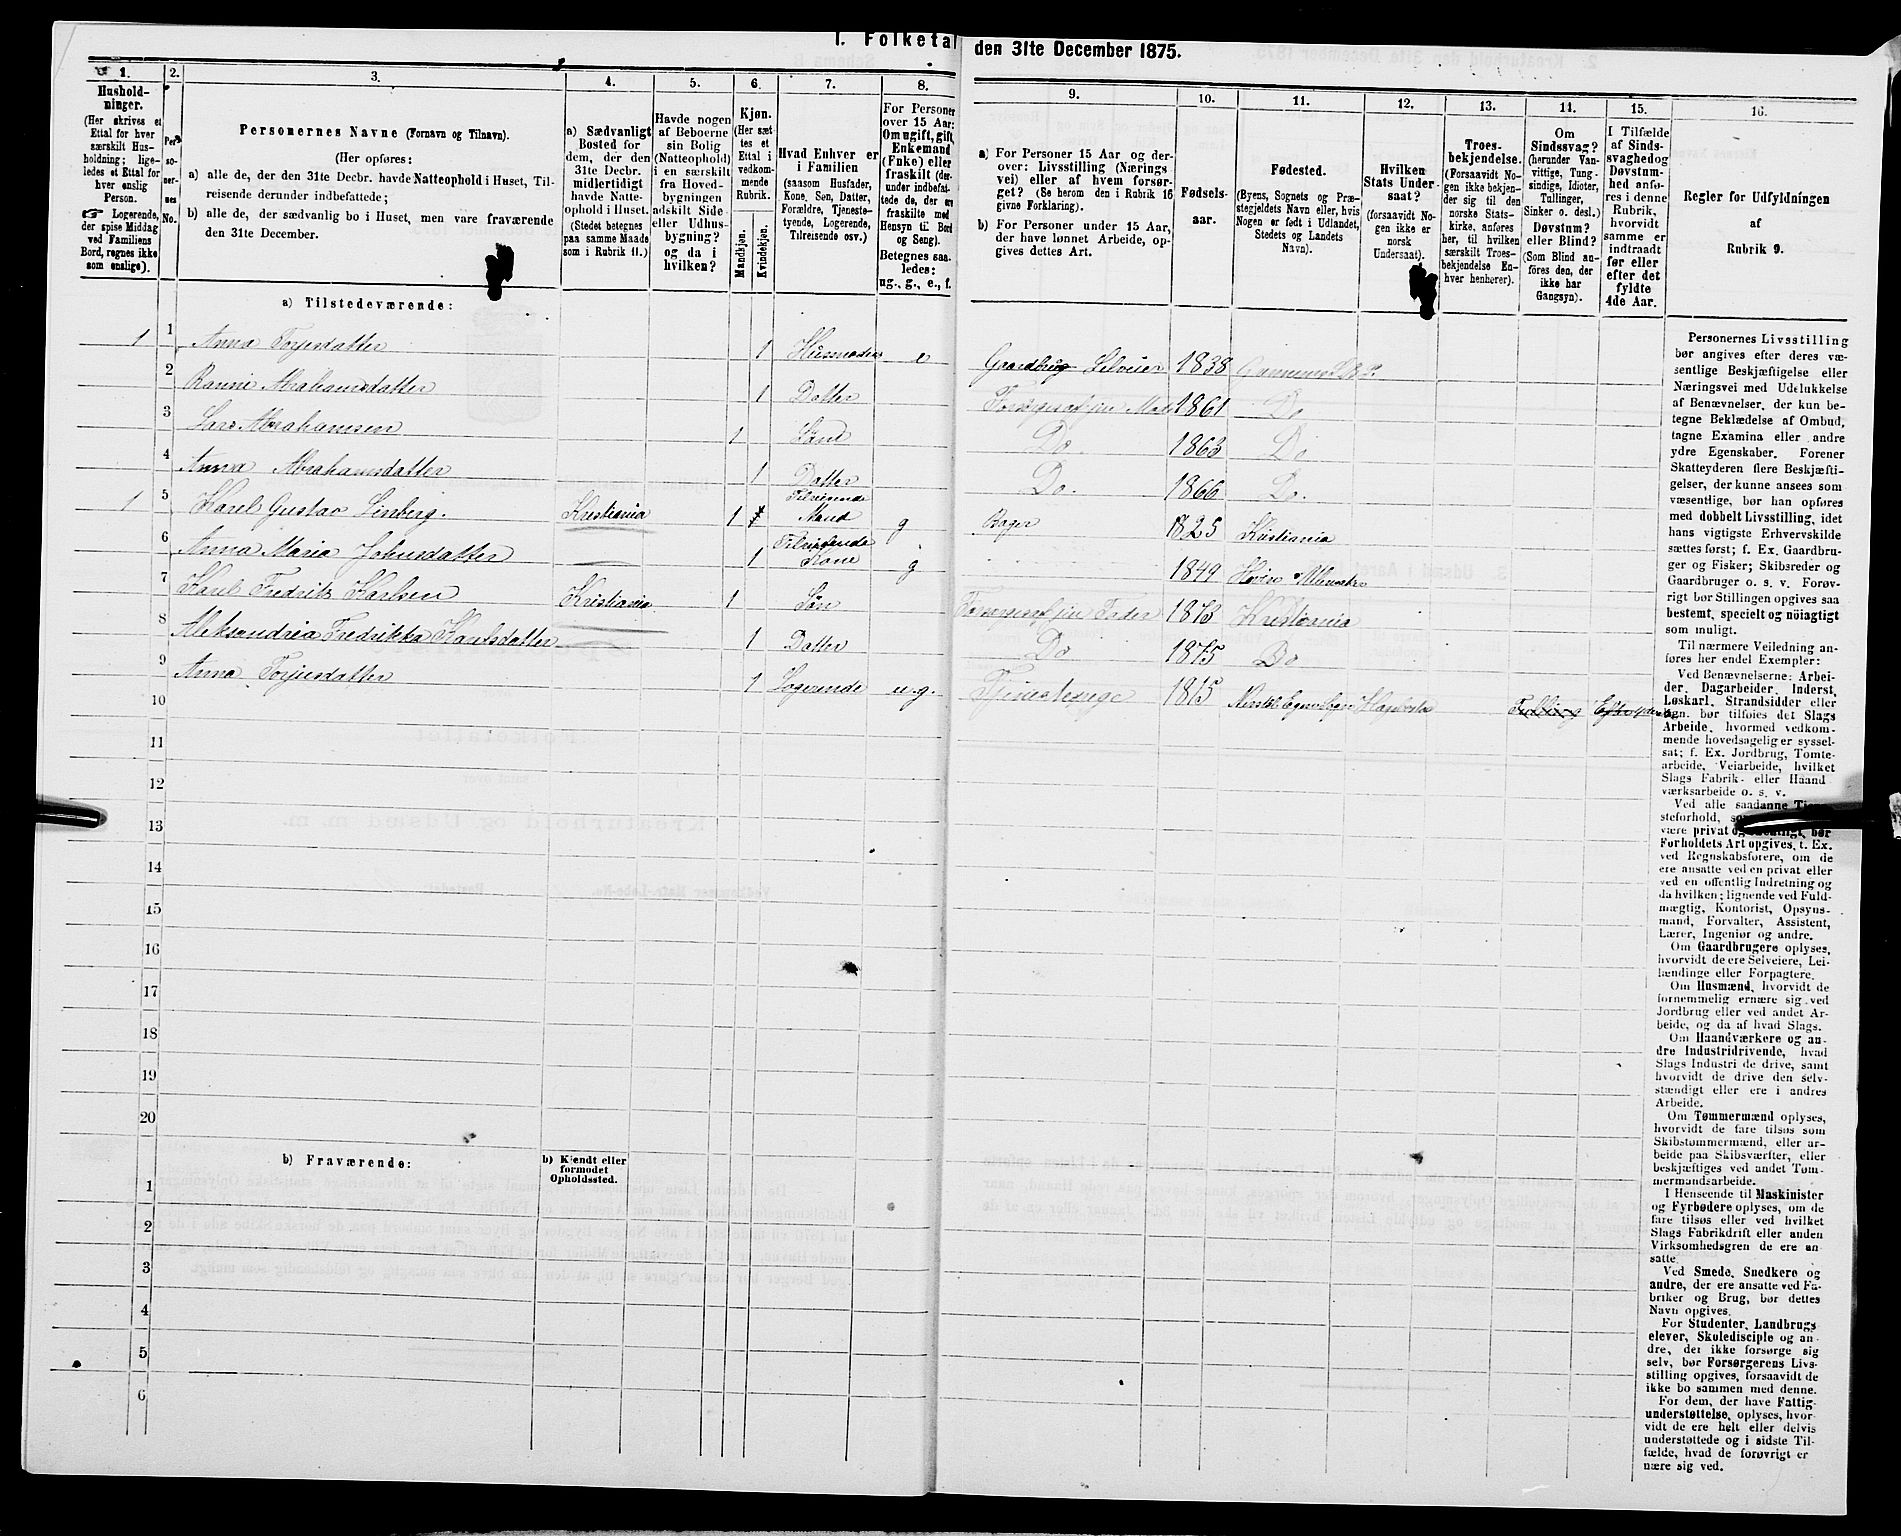 I. Folketal
den 31te December 1875.
1. 2. 3. 4. 5. 6. 7. 8. 9. 10. 11. 12. 13. 14. 15. 16.
Hushold-
ninger.
(Her skrives et
Ettal for hver
særskilt Hus-
holdning; lige-
ledes et Ettal for
hver enslig
Person.
☞ Logerende,
der spise Middag
ved Familiens
Bord, regnes ikke
som enslige).
Per-
so-
ner-
nes
No.
Personernes Navne (Fornavn og Tilnavn).
(Her opføres:
a) alle de, der den 31te Decbr. havde Natteophold i Huset, Til-
reisende derunder indbefattede;
b) alle de, der sædvanlig bo i Huset, men vare fraværende
den 31te December.
a) Sædvanligt
Bosted for
dem, der den
31te Decbr.
midlertidigt
havde Natte-
ophold i Huset.
(Stedet betegnes
paa samme Maade
som i Rubrik 11.)
Havde nogen
af Beboerne
sin Bolig
(Natteophold)
i en særskilt
fra Hoved-
bygningen
adskilt Side-
eller Udhus-
bygning?
og da i
hvilken?
Kjøn.
(Her sæt-
tes et
Ettal i
vedkom-
mende
Rubrik.
Mandkjøn.
Kvindekjøn.
Hvad Enhver er
i Familien
(saasom Husfader,
Kone, Søn, Datter,
Forældre, Tjeneste-
tyende, Logerende,
Tilreisende osv.)
For Personer
over 15 Aar:
Om ugift, gift,
Enkemand
(Enke) eller
fraskilt (der-
under indbefat-
tede de, der er
fraskilte med
Hensyn til Bord
og Seng).
Betegnes saa-
ledes:
ug., g., e., f.
a) For Personer 15 Aar og der-
over: Livsstilling (Nærings-
vei) eller af hvem forsør-
get? (Se herom den i Rubrik 16
givne Forklaring).
b) For Personer under 15 Aar,
der have lønnet Arbeide, op-
gives dettes Art.
Fødsels-
aar.
Fødested.
(Byens, Sognets og Præ-
stegjeldets Navn eller, hvis
Nogen er født i Udlandet,
Stedets og Landets
Navn).
Hvilken
Stats Under-
saat?
(forsaavidt No-
gen ikke er
norsk
Undersaat).
Troes-
bekjendelse.
(Forsaavidt No-
gen ikke bekjen-
der sig til den
norske Stats-
kirke, anføres
her, til hvilken
særskilt Troes-
bekjendelse En-
hver henhører).
Om
Sindssvag?
(herunder Van-
vittige, Tung-
sindige, Idioter,
Tullinger,
Sinker o. desl.)
Døvstum?
eller Blind?
(Som Blind an-
føres den, der
ikke har
Gangsyn).
I Tilfælde
af Sinds-
svaghed og
Døvstum-
hed anfø-
res i denne
Rubrik,
hvorvidt
samme er
indtraadt
før eller
efter det
fyldte
4de Aar.
Regler for Udfyldningen
af
Rubrik 9.
a) Tilstedeværende:
1 1 Anna Torjesdatter 1 Husmoder e Gaardbrug Selveier 1838
2 Ranni Abrahamsdatter 1 Datter 1861 Do
3 Lars Abrahamsen 1 Søn Do. 1863 Do
4 Anna Abrahamsdatter 1 Datter Do. 1866 Do.
1 5 Karl Gustav Linberg. Kristiania 1 Tilreisende Mand g Bager 1825 Kristiania
6 Anna Maria Johnsdatter 1 Tilreisende Kone g 1849
7 Karl Fredrik Karlsen Kristiania 1 Søn Forsørges af sin Fader 1873 Kristiania
8 Aleksandria Fredrikka Karlsdatter 1 Datter Do 1875 Do
9 Anna Torjesdatter 1 Logerende u.g. Tjenestepige 1815
10
11
12
13
14
15
16
17
18
19
20
b) Fraværende:
b) Kjendt eller
formodet
Opholdssted.
1
2
3
4
5
6
Personernes Livsstilling
bør angives efter deres væ-
sentlige Beskjæftigelse eller
Næringsvei med Udelukkelse
af Benævnelser, der kun be-
tegne Beklædelse af Ombud,
tagne Examina eller andre
ydre Egenskaber. Forener
Skatteyderen flere Beskjæfti-
gelser, der kunne ansees som
væsentlige, bør han opføres
med dobbelt Livsstilling, idet
hans vigtigste Erhvervskilde
sættes først; f. Ex. Gaardbru-
ger og Fisker; Skibsreder og
Gaardbruger o. s. v. Forøv-
rigt bør Stillingen opgives saa
bestemt, specielt og nöiagtigt
som muligt.
Til nærmere Veiledning an-
føres her endel Exempler:
Ved Benævnelserne: Arbei-
der, Dagarbeider, Inderst,
Løskarl, Strandsidder eller
lign. bør tilføies det Slags
Arbeide, hvormed vedkom-
mende hovedsagelig er syssel-
sat; f. Ex. Jordbrug, Tomte-
arbeide, Veiarbeide, hvilket
Slags Fabrik- eller Haand
værksarbeide o. s. v.
Ved alle saadanne Tjene-
steforhold,
være privat og offentligt, bør
Forholdets Art opgives, t. Ex.
ved Regnskabsførere, om de
ere ansatte ved en privat eller
ved en offentlig Indretning og
da hvilken; lignende ved Fuld-
mægtig, Kontorist, Opsyns-
mand, Forvalter, Assistent,
Lærer, Ingeniør og andre.
Om Gaardbrugere oplyses,
hvorvidt de ere Selveiere, Lei-
lændinge eller Forpagtere.
Om Husmænd, hvorvidt de
fornemmelig ernære sig ved
Jordbrug eller ved andet Ar-
beide, og da af hvad Slags.
Om Haandværkere og an-
dre Industridrivende, hvad
Slags Industri de drive, samt
hvorvidt de drive den selv-
stændigt eller ere i andres
Arbeide.
Om Tømmermænd oplyses,
hvorvidt de fare tilsøs som
Skibstømmermænd, eller ar-
beide paa Skibsværfter, eller
beskjæftiges ved andet Tøm-
mermandsarbeide.
I Henseende til Maskinister
og Fyrbødere oplyses, om de
fare tilsøs eller ved hvilket
Slags Fabrikdrift eller anden
Virksomhedsgren de ere an-
satte.
Ved Smede, Snedkere og
andre, der ere ansatte ved Fa-
briker og Brug, bør dettes
Navn opgives.
For Studenter, Landbrugs-
elever, Skoledisciple og an-
dre, der ikke forsørge sig
selv, bør Forsørgerens Livs-
stilling opgives, forsaavidt de
ikke bo sammen med denne.
For dem, der have Fattig-
understøttelse, oplyses, hvor-
vidt de ere helt eller delvis
understøttede og i sidste Til-
fælde, hvad de forøvrigt er
nære sig ved.